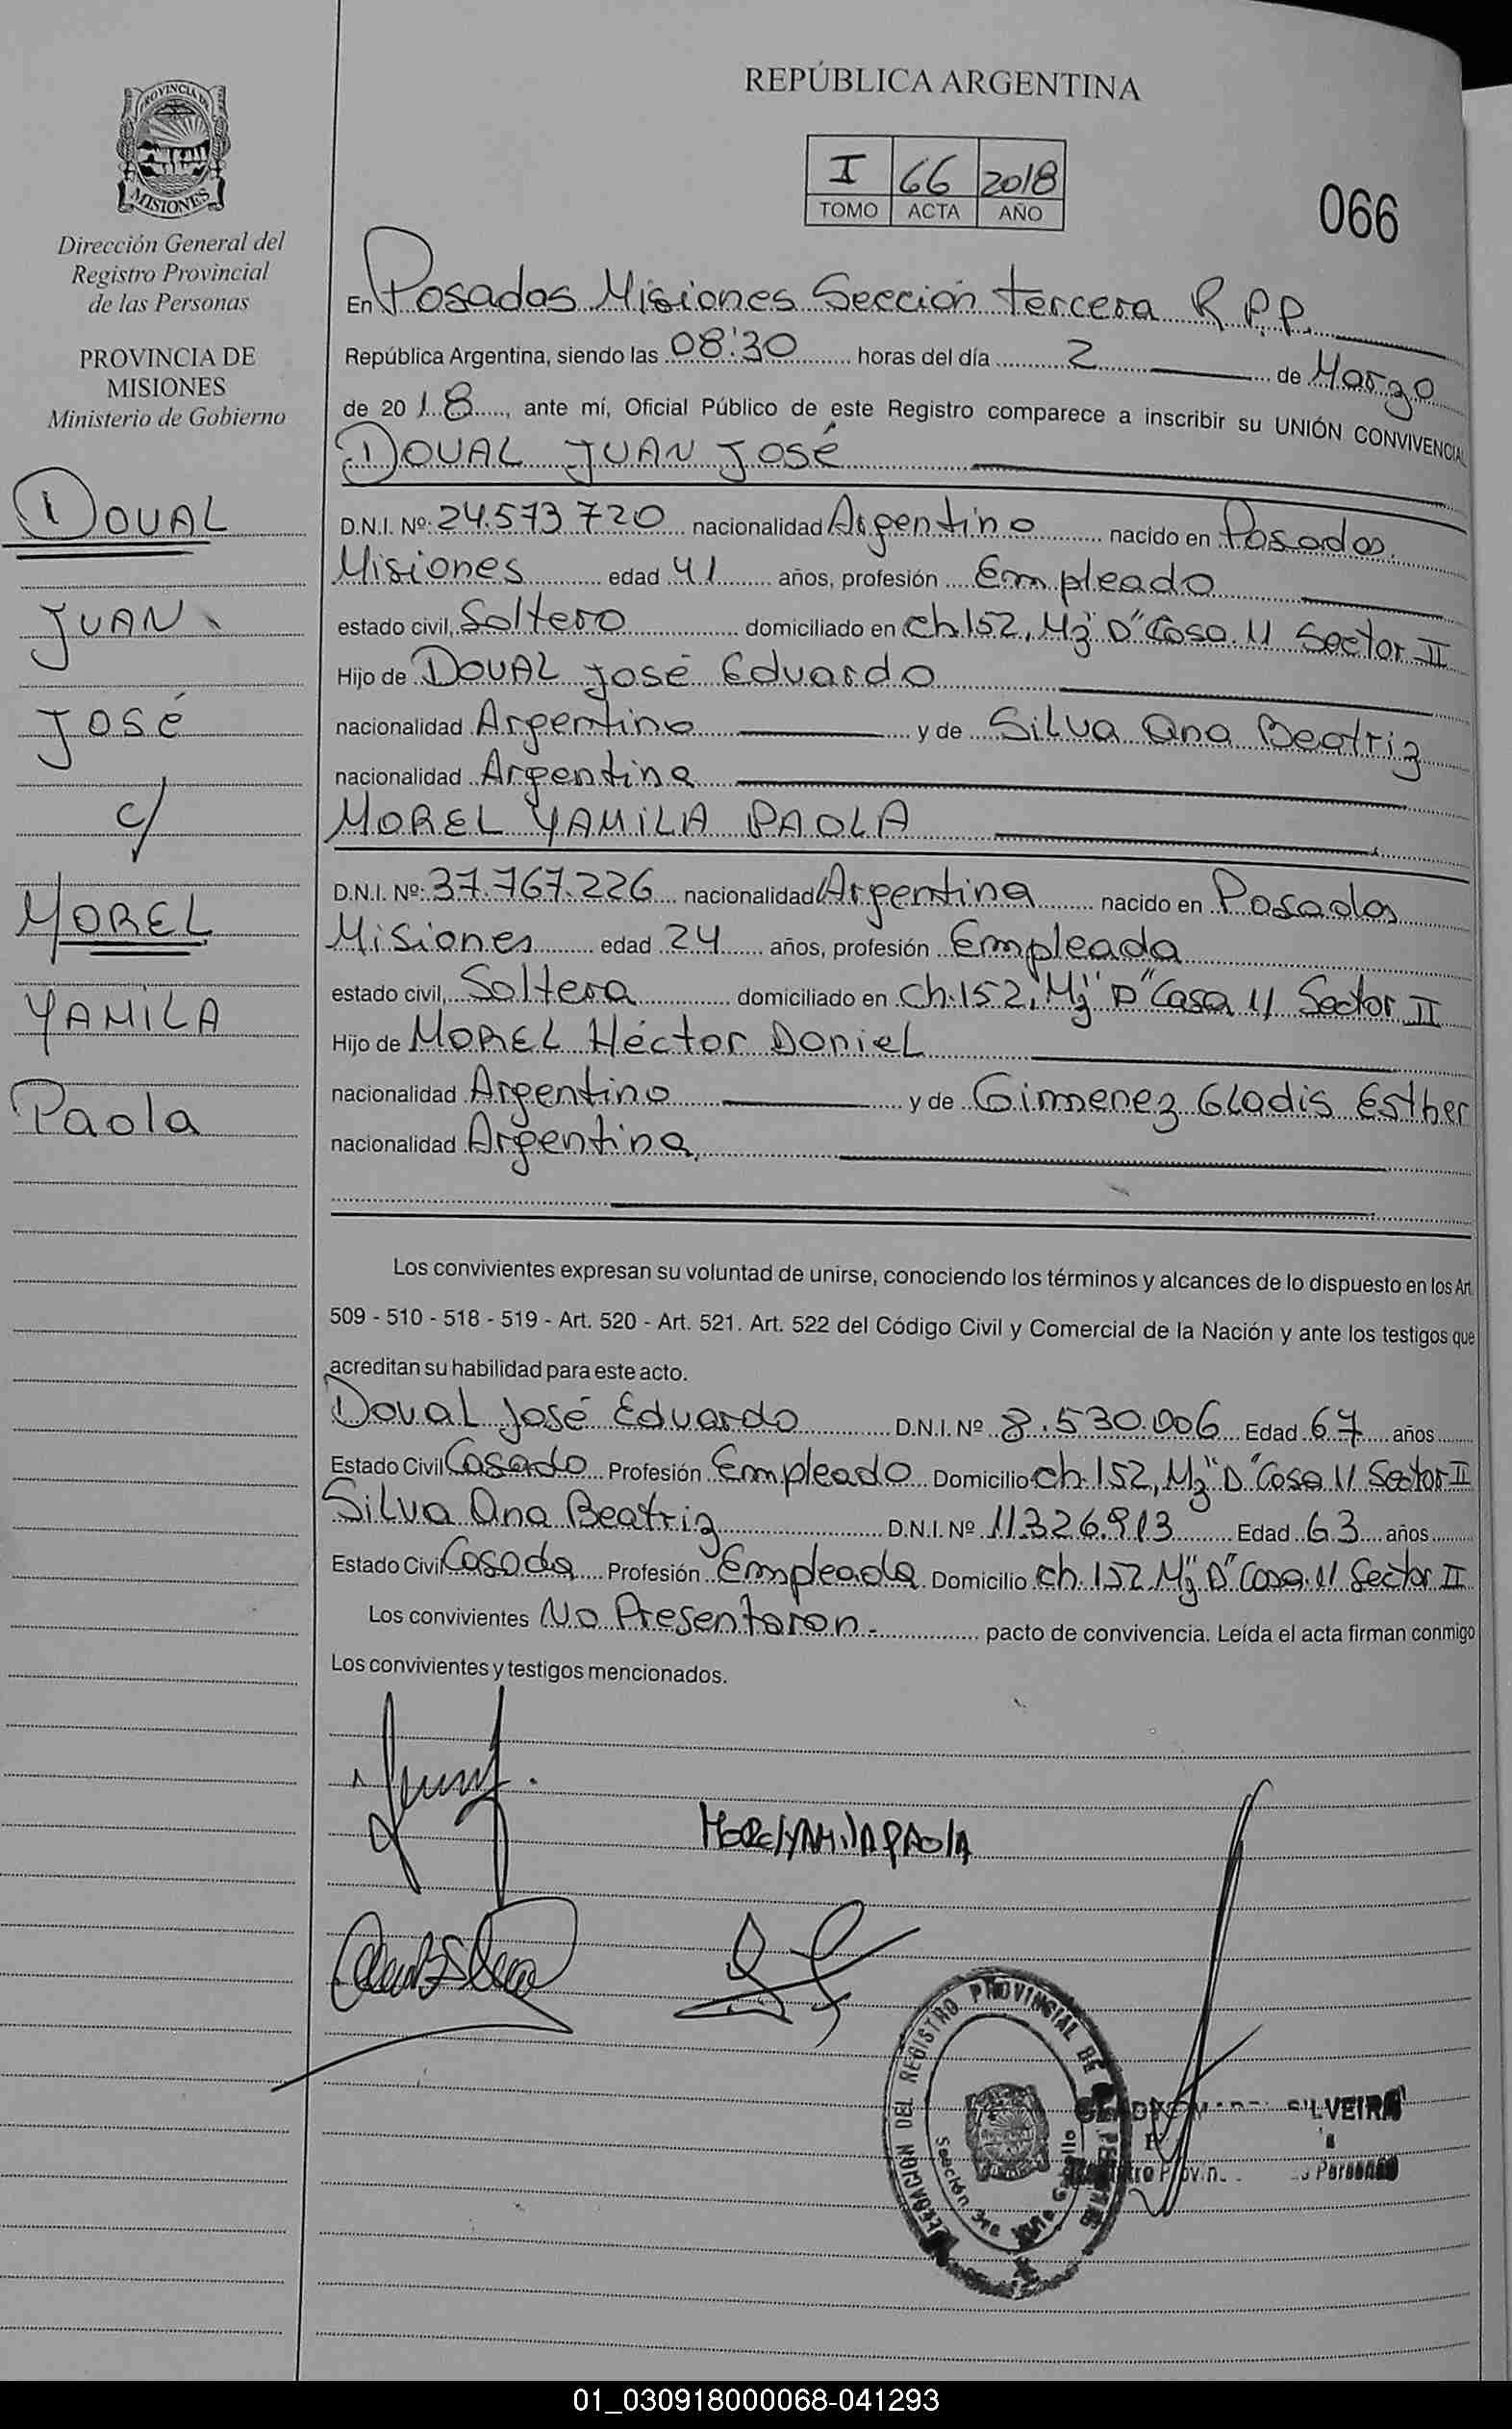 PROVINCIA DE
MISIONES
Dirección General del
Registro Provincial
de las Personas
PROVINCIA DE
MISIONES
Ministerio de Gobierno
DOVAL
JUAN
JOSÉ
c/
MOREL
YAMILA
Paola
REPÚBLICA ARGENTINA
I 66 2018
TOMO ACTA AÑO
066
En Posadas Misiones Sección tercera R.P.P.
República Argentina, siendo las 08:30 horas del día 2 de Marzo
de 2018, ante mí, Oficial Público de este Registro comparece a inscribir su UNIÓN CONVIVENCIAL
DOVAL JUAN JOSÉ
D.N.I. Nº: 24.573.720 nacionalidad Argentino nacido en Posadas
Misiones edad 41 años, profesión Empleado
estado civil, Soltero domiciliado en Ch.152, Mz "D" Casa 11 Sector II
Hijo de DOVAL José Eduardo
nacionalidad Argentino y de Silva Ana Beatriz
nacionalidad Argentina
MOREL YAMILA PAOLA
D.N.I. Nº: 37.767.226 nacionalidad Argentina nacido en Posadas
Misiones edad 24 años, profesión Empleada
estado civil, Soltera domiciliado en Ch.152, Mz "D" Casa 11 Sector II
Hijo de MOREL Héctor Daniel
nacionalidad Argentino y de Gimenez Gladis Esther
nacionalidad Argentina,
Los convivientes expresan su voluntad de unirse, conociendo los términos y alcances de lo dispuesto en los Art.
509 - 510 - 518 - 519 - Art. 520 - Art. 521. Art. 522 del Código Civil y Comercial de la Nación y ante los testigos que
acreditan su habilidad para este acto.
Doval José Eduardo D.N.I. Nº 8.530.006 Edad 67 años
Estado Civil Casado Profesión Empleado Domicilio Ch.152, Mz "D" Casa 11 Sector II
Silva Ana Beatriz D.N.I. Nº 11.326.913 Edad 63 años
Estado Civil Casada Profesión Empleada Domicilio Ch.152 Mz "D" Casa 11 Sector II
Los convivientes No Presentaron. pacto de convivencia. Leída el acta firman conmigo
Los convivientes y testigos mencionados.
MOREL YAMILA PAOLA
DEL REGISTRO PROVINCIAL DE
Sección 3ra
SILVEIRA
01_030918000068-041293